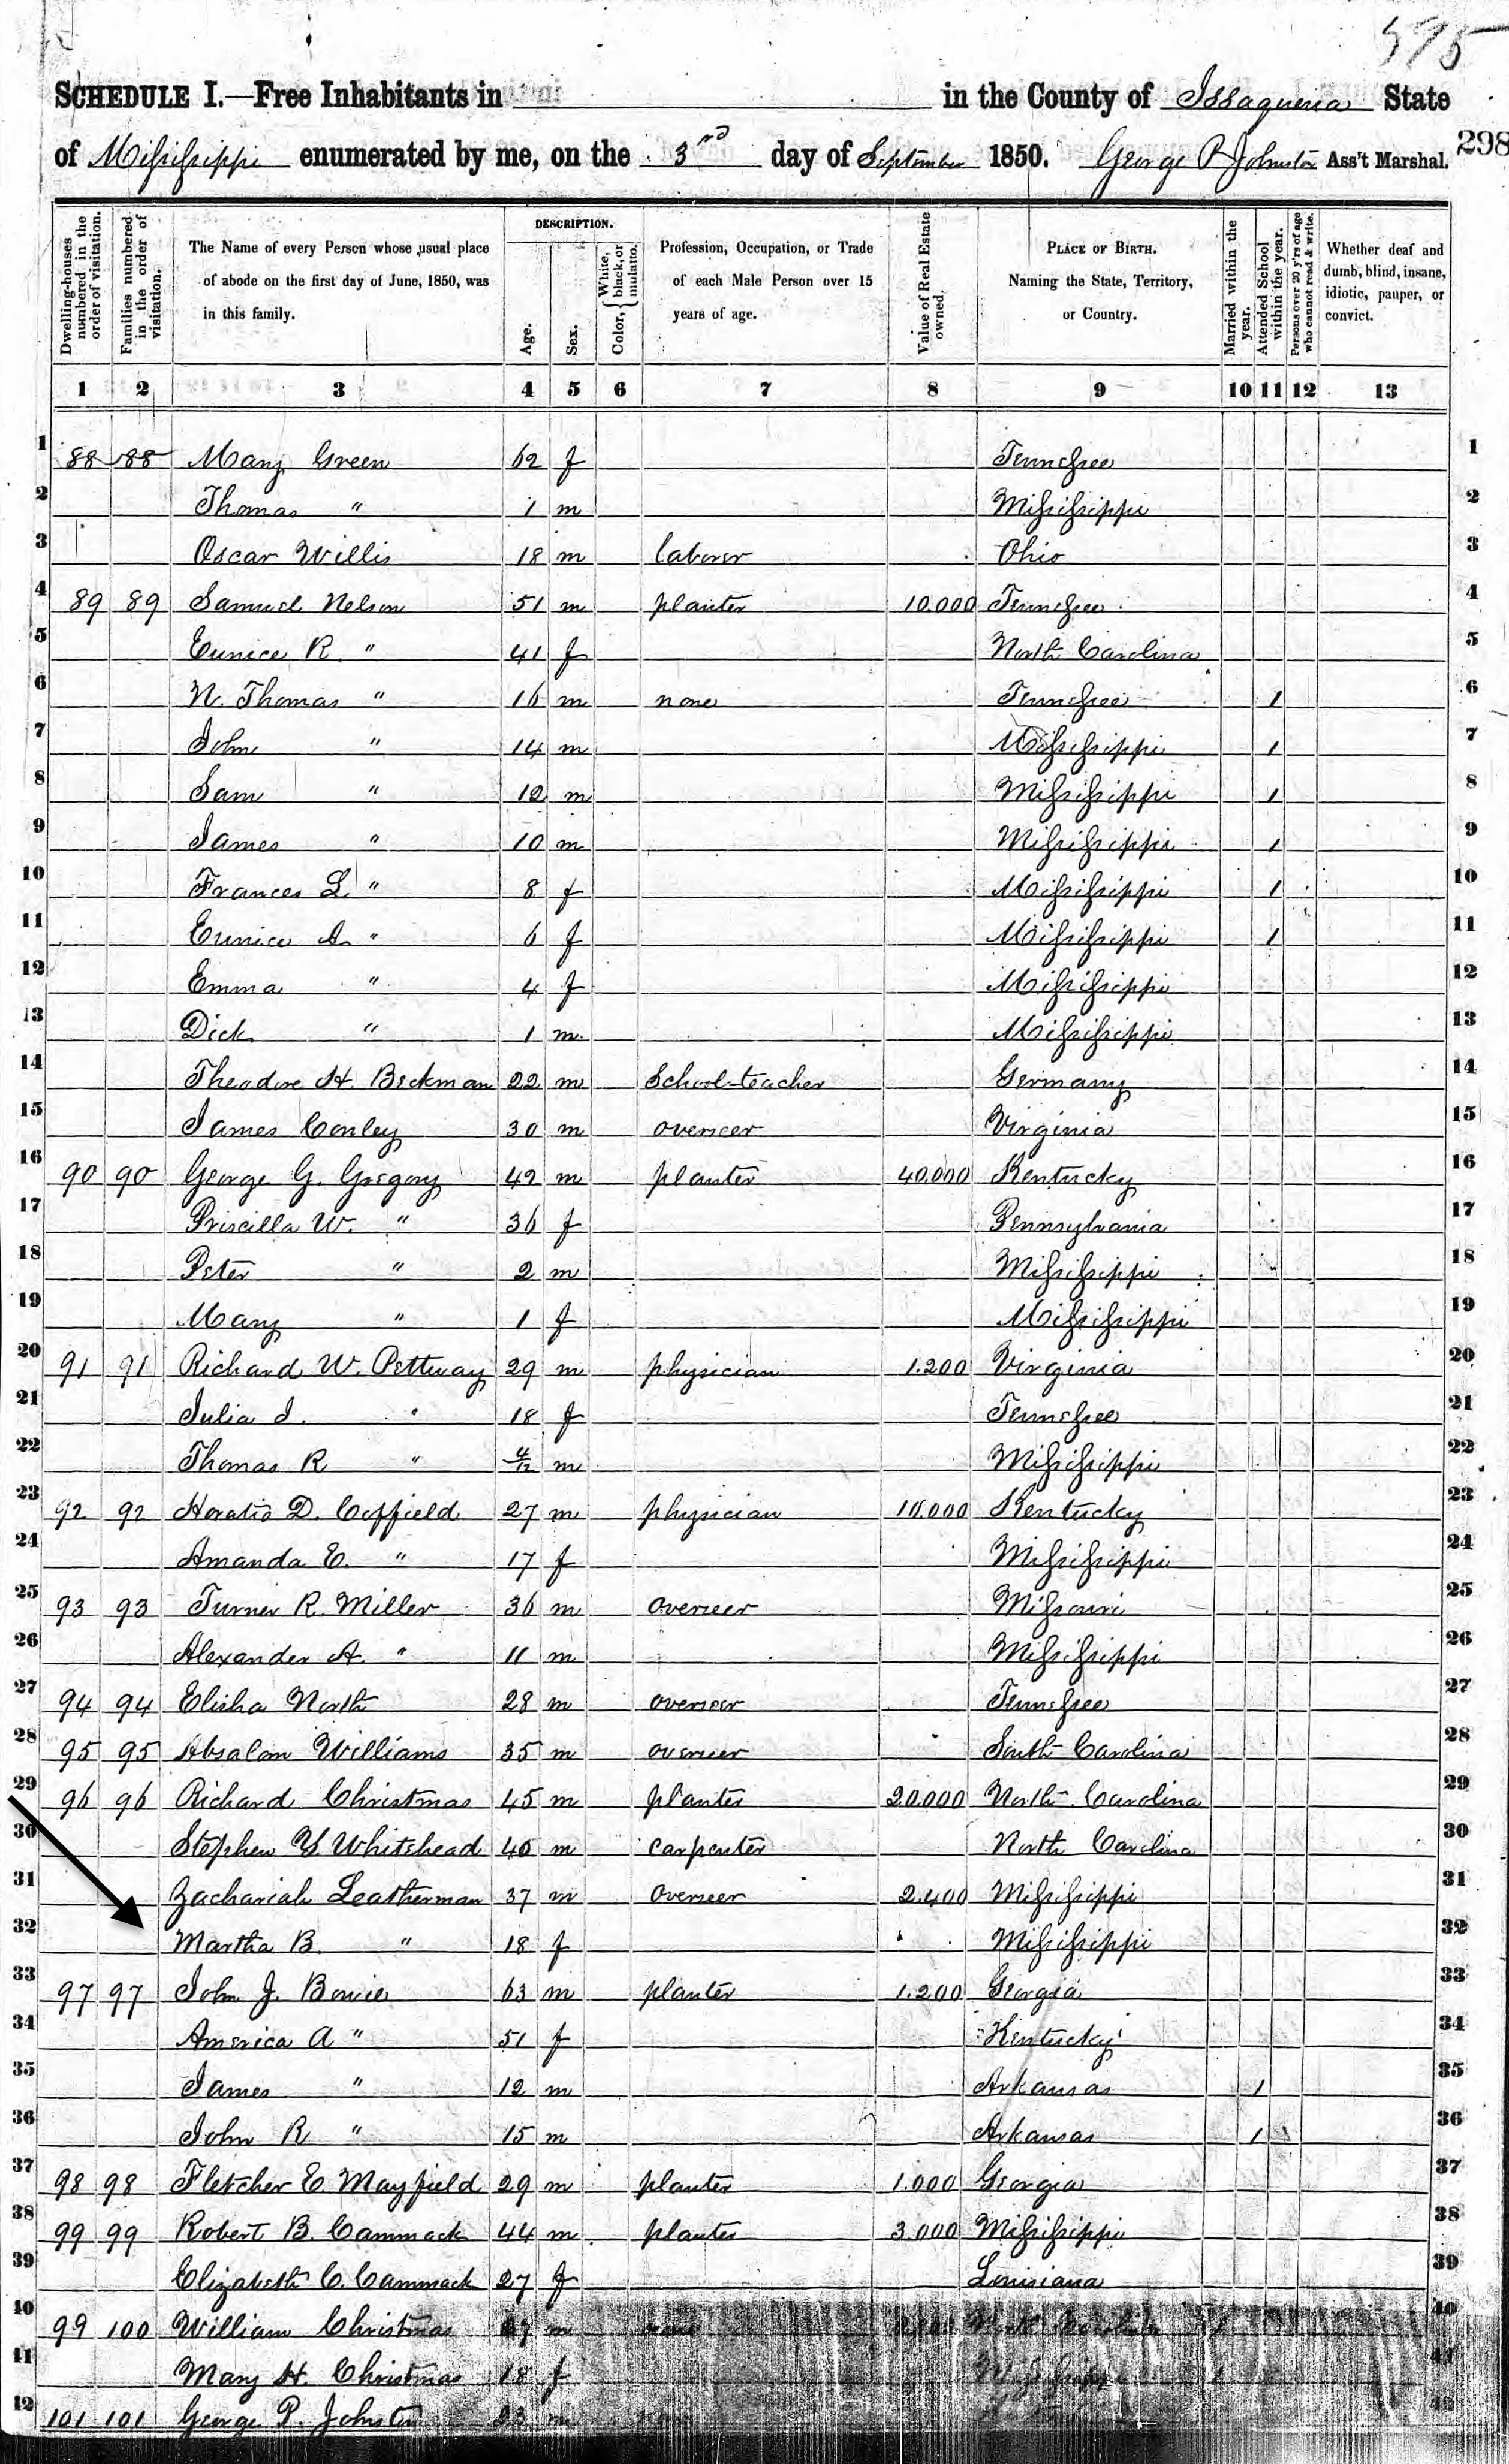 595
SCHEDULE I.—Free Inhabitants in in the County of Issaquena State
of Mississippi enumerated by me, on the 3rd day of September 1850. George P Johnston Ass't Marshal. 298
Dwelling-houses numbered in the order of visitation. Families numbered in the order of visitation. The Name of every Person whose usual place of abode on the first day of June, 1850, was in this family. DESCRIPTION. Age. Sex. Color, { White, black, or mulatto. Profession, Occupation, or Trade of each Male Person over 15 years of age. Value of Real Estate owned. PLACE OF BIRTH. Naming the State, Territory, or Country. Married within the year. Attended School within the year. Persons over 20 y'rs of age who cannot read & write. Whether deaf and dumb, blind, insane, idiotic, pauper, or convict.
1 2 3 4 5 6 7 8 9 10 11 12 13
1 88 88 Mary Green 62 f Tennessee 1
2 Thomas " 1 m Mississippi 2
3 Oscar Willis 18 m laborer Ohio 3
4 89 89 Samuel Nelson 51 m planter 10.000 Tennessee 4
5 Eunice R. " 41 f North Carolina 5
6 N. Thomas " 16 m none Tennessee 1 6
7 John " 14 m Mississippi 1 7
8 Sam " 12 m Mississippi 1 8
9 James " 10 m Mississippi 1 9
10 Frances L. " 8 f Mississippi 1 10
11 Eunice A. " 6 f Mississippi 1 11
12 Emma " 4 f Mississippi 12
13 Dick " 1 m. Mississippi 13
14 Theodore H. Beckman 22 m School-teacher Germany 14
15 James Conley 30 m overseer Virginia 15
16 90 90 George G. Gregory 42 m planter 40.000 Kentucky 16
17 Priscilla W. " 36 f Pennsylvania 17
18 Peter " 2 m Mississippi 18
19 Mary " 1 f Mississippi 19
20 91 91 Richard W. Pettway 29 m physician 1.200 Virginia 20
21 Julia J. " 18 f Tennessee 21
22 Thomas R " 4/12 m Mississippi 22
23 92 92 Horatio D. Coffield 27 m physician 10.000 Kentucky 23
24 Amanda E. " 17 f Mississippi 24
25 93 93 Turner R. Miller 36 m overseer Missouri 25
26 Alexander A. " 11 m Mississippi 26
27 94 94 Elisha North 28 m overseer Tennessee 27
28 95 95 Absalom Williams 35 m overseer South Carolina 28
29 96 96 Richard Christmas 45 m planter 20.000 North Carolina 29
30 Stephen Y. Whitehead 40 m carpenter North Carolina 30
31 Zachariah Leatherman 37 m overseer 2.400 Mississippi 31
32 Martha B. " 18 f Mississippi 32
33 97 97 John J. Bowie 63 m planter 1.200 Georgia 33
34 America A " 51 f Kentucky 34
35 James " 12 m Arkansas 1 35
36 John R " 15 m Arkansas 1 36
37 98 98 Fletcher E. Mayfield 29 m planter 1.000 Georgia 37
38 99 99 Robert B. Cammack 44 m planter 3.000 Mississippi 38
39 Elizabeth C. Cammack 27 f Louisiana 39
40 99 100 William Christmas 27 m none North Carolina 1 40
41 Mary H. Christmas 18 f Mississippi 1 41
42 101 101 George P. Johnston 23 m 42